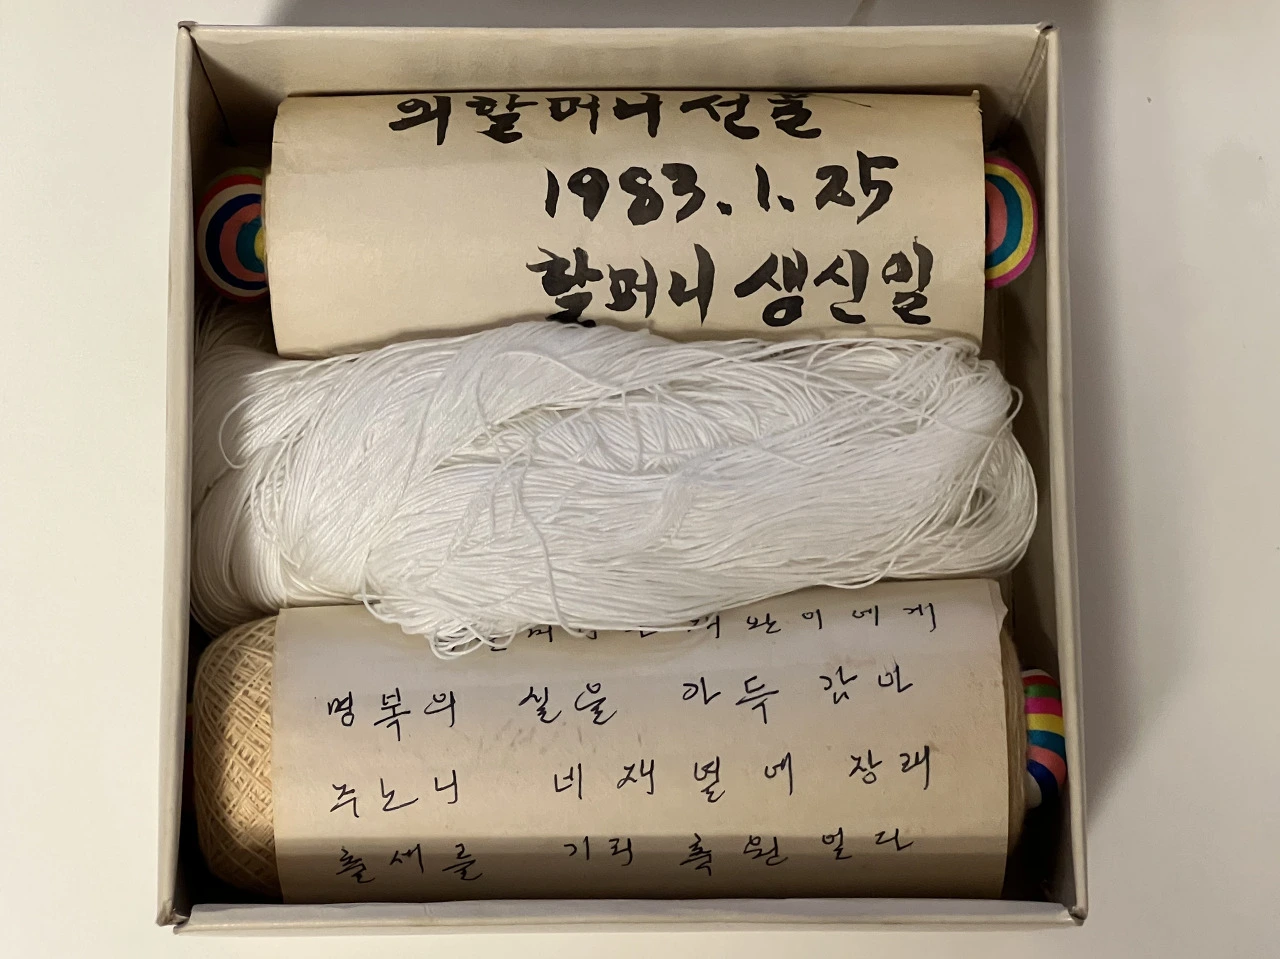 의할머니 선물
1983.1.25
할머니 생신일
완이에게
명복의 실을 아두 감아
주노니 네 재열에 장래
출세를 기리 축원 얼다